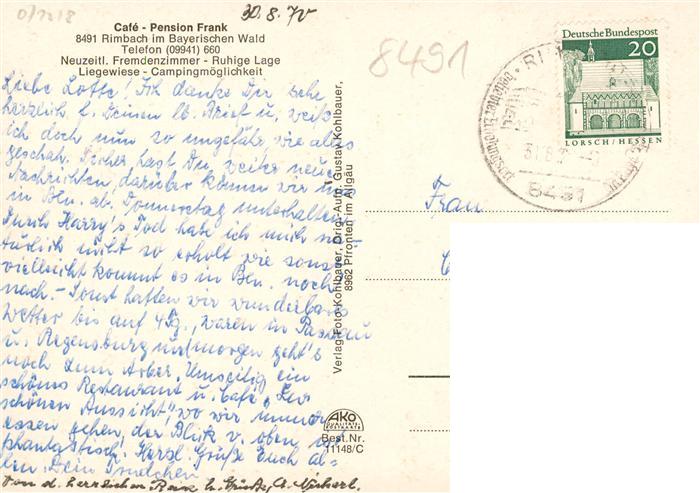 30.8.70
Café - Pension Frank
8491 Rimbach im Bayerischen Wald
Telefon (09941) 660
Neuzeitl. Fremdenzimmer - Ruhige Lage
Liegewiese - Campingmöglichkeit
8491
Deutsche Bundespost
20
LORSCH / HESSEN
8491
Liebe Lotte! Ich danke Dir sehr
herzlich f. Deinen lb. Brief u. weiß
ich doch nun so ungefähr wie alles
geschah. Sicher hast Du weiter neue
Nachrichten, darüber können wir uns
in Bln. ab Donnerstag unterhalten.
Durch Harry's Tod habe ich mich na-
türlich nicht so erholt wie sonst
vielleicht kommt es in Bln. noch
nach. - Sonst hatten wir wunderbar
Wetter bis auf 4 Tg., waren in Passau
u. Regensburg und morgen geht's
noch zum Arber. Umseitig ein
schönes Restaurant u. Café "Zur
schönen Aussicht", wo wir immer
essen gehen, der Blick v. oben ist
phantastisch! Herzl. Grüße Euch al-
len Dein
Von d. herrlichen
Frau
Verlag Foto-Kohlbauer, Orig.-Aufn. Gustav Kohlbauer,
8962 Pfronten im Allgäu
AKO
QUALITÄTS-
POSTKARTE
Best.Nr.
11148/C